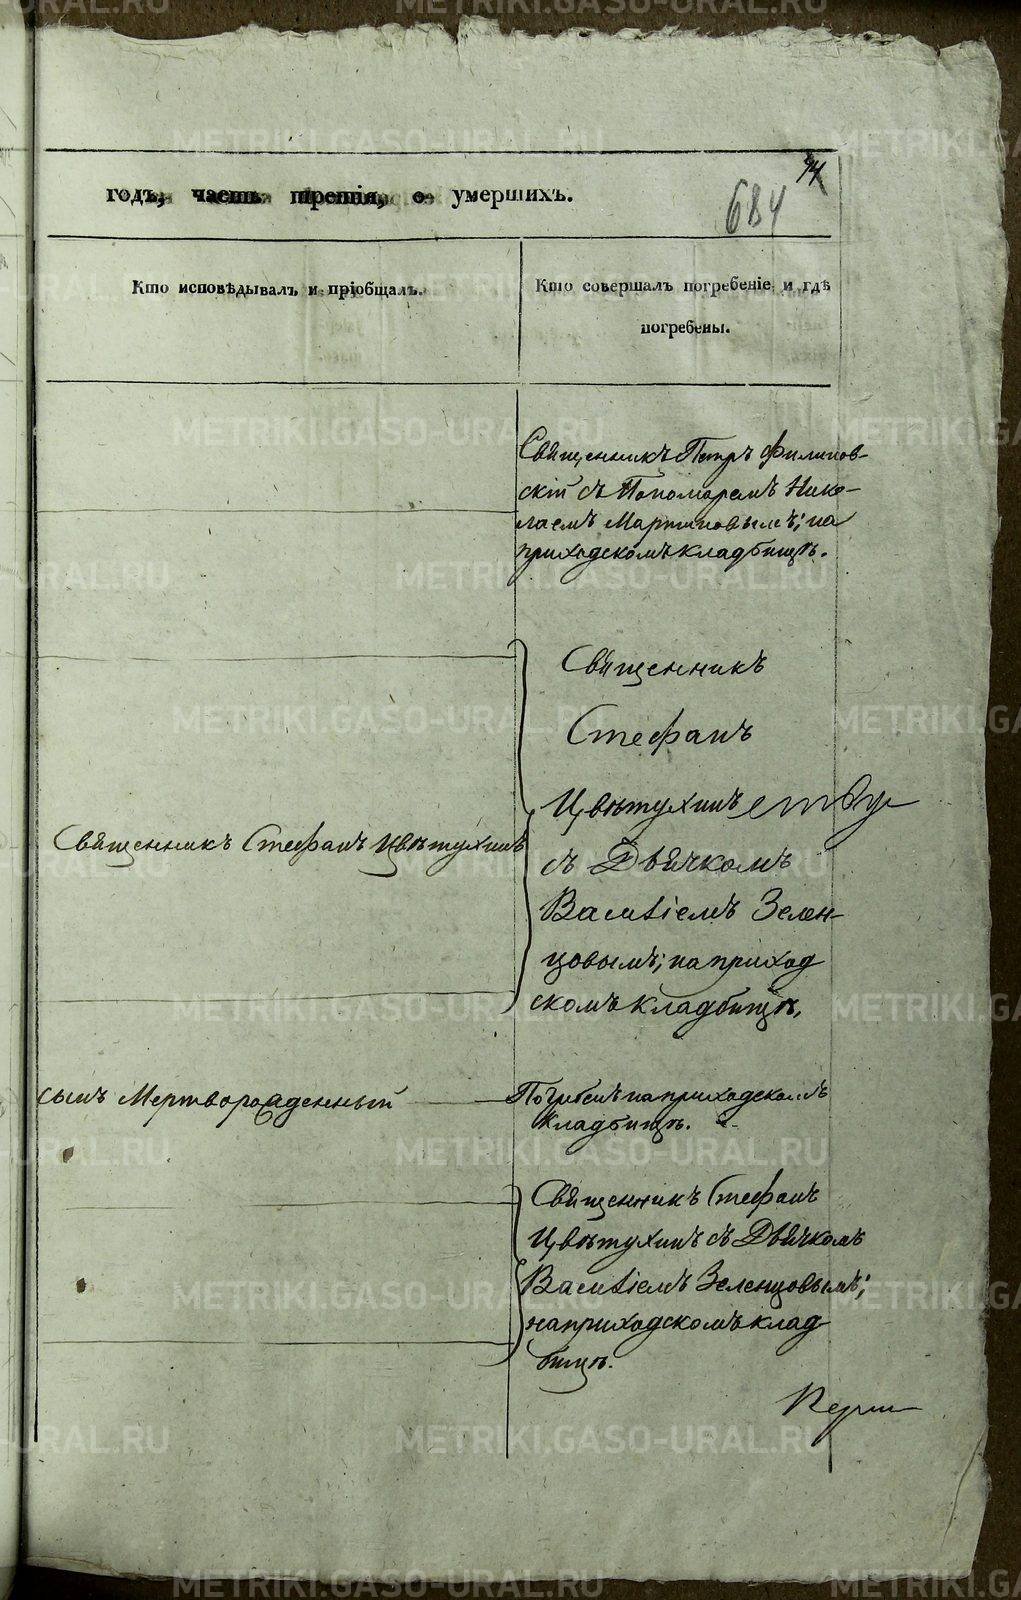 METRIKI.GASO-URAL.RU
74
годъ, часть третія, о умершихъ.
684
Кто исповѣдывалъ и пріобщалъ.
Кто совершалъ погребеніе и гдѣ
погребены.
Священникъ Петръ Филипов-
скій съ Пономаремъ Нико-
лаемъ Мартиновымъ; на
приходскомъ кладбищѣ.
Священникъ
Стефанъ
Цвѣтухинъ
Священникъ Стефанъ Цвѣтухинъ
съ Дьячкомъ
Василіемъ Зелен-
цовымъ; на приход
скомъ кладбищѣ.
сынъ Мертворожденный
Погребенъ на приходскомъ
кладбищѣ.
Священникъ Стефанъ
Цвѣтухинъ съ Дьячкомъ
Василіемъ Зеленцовымъ;
на приходскомъ клад
бищѣ.